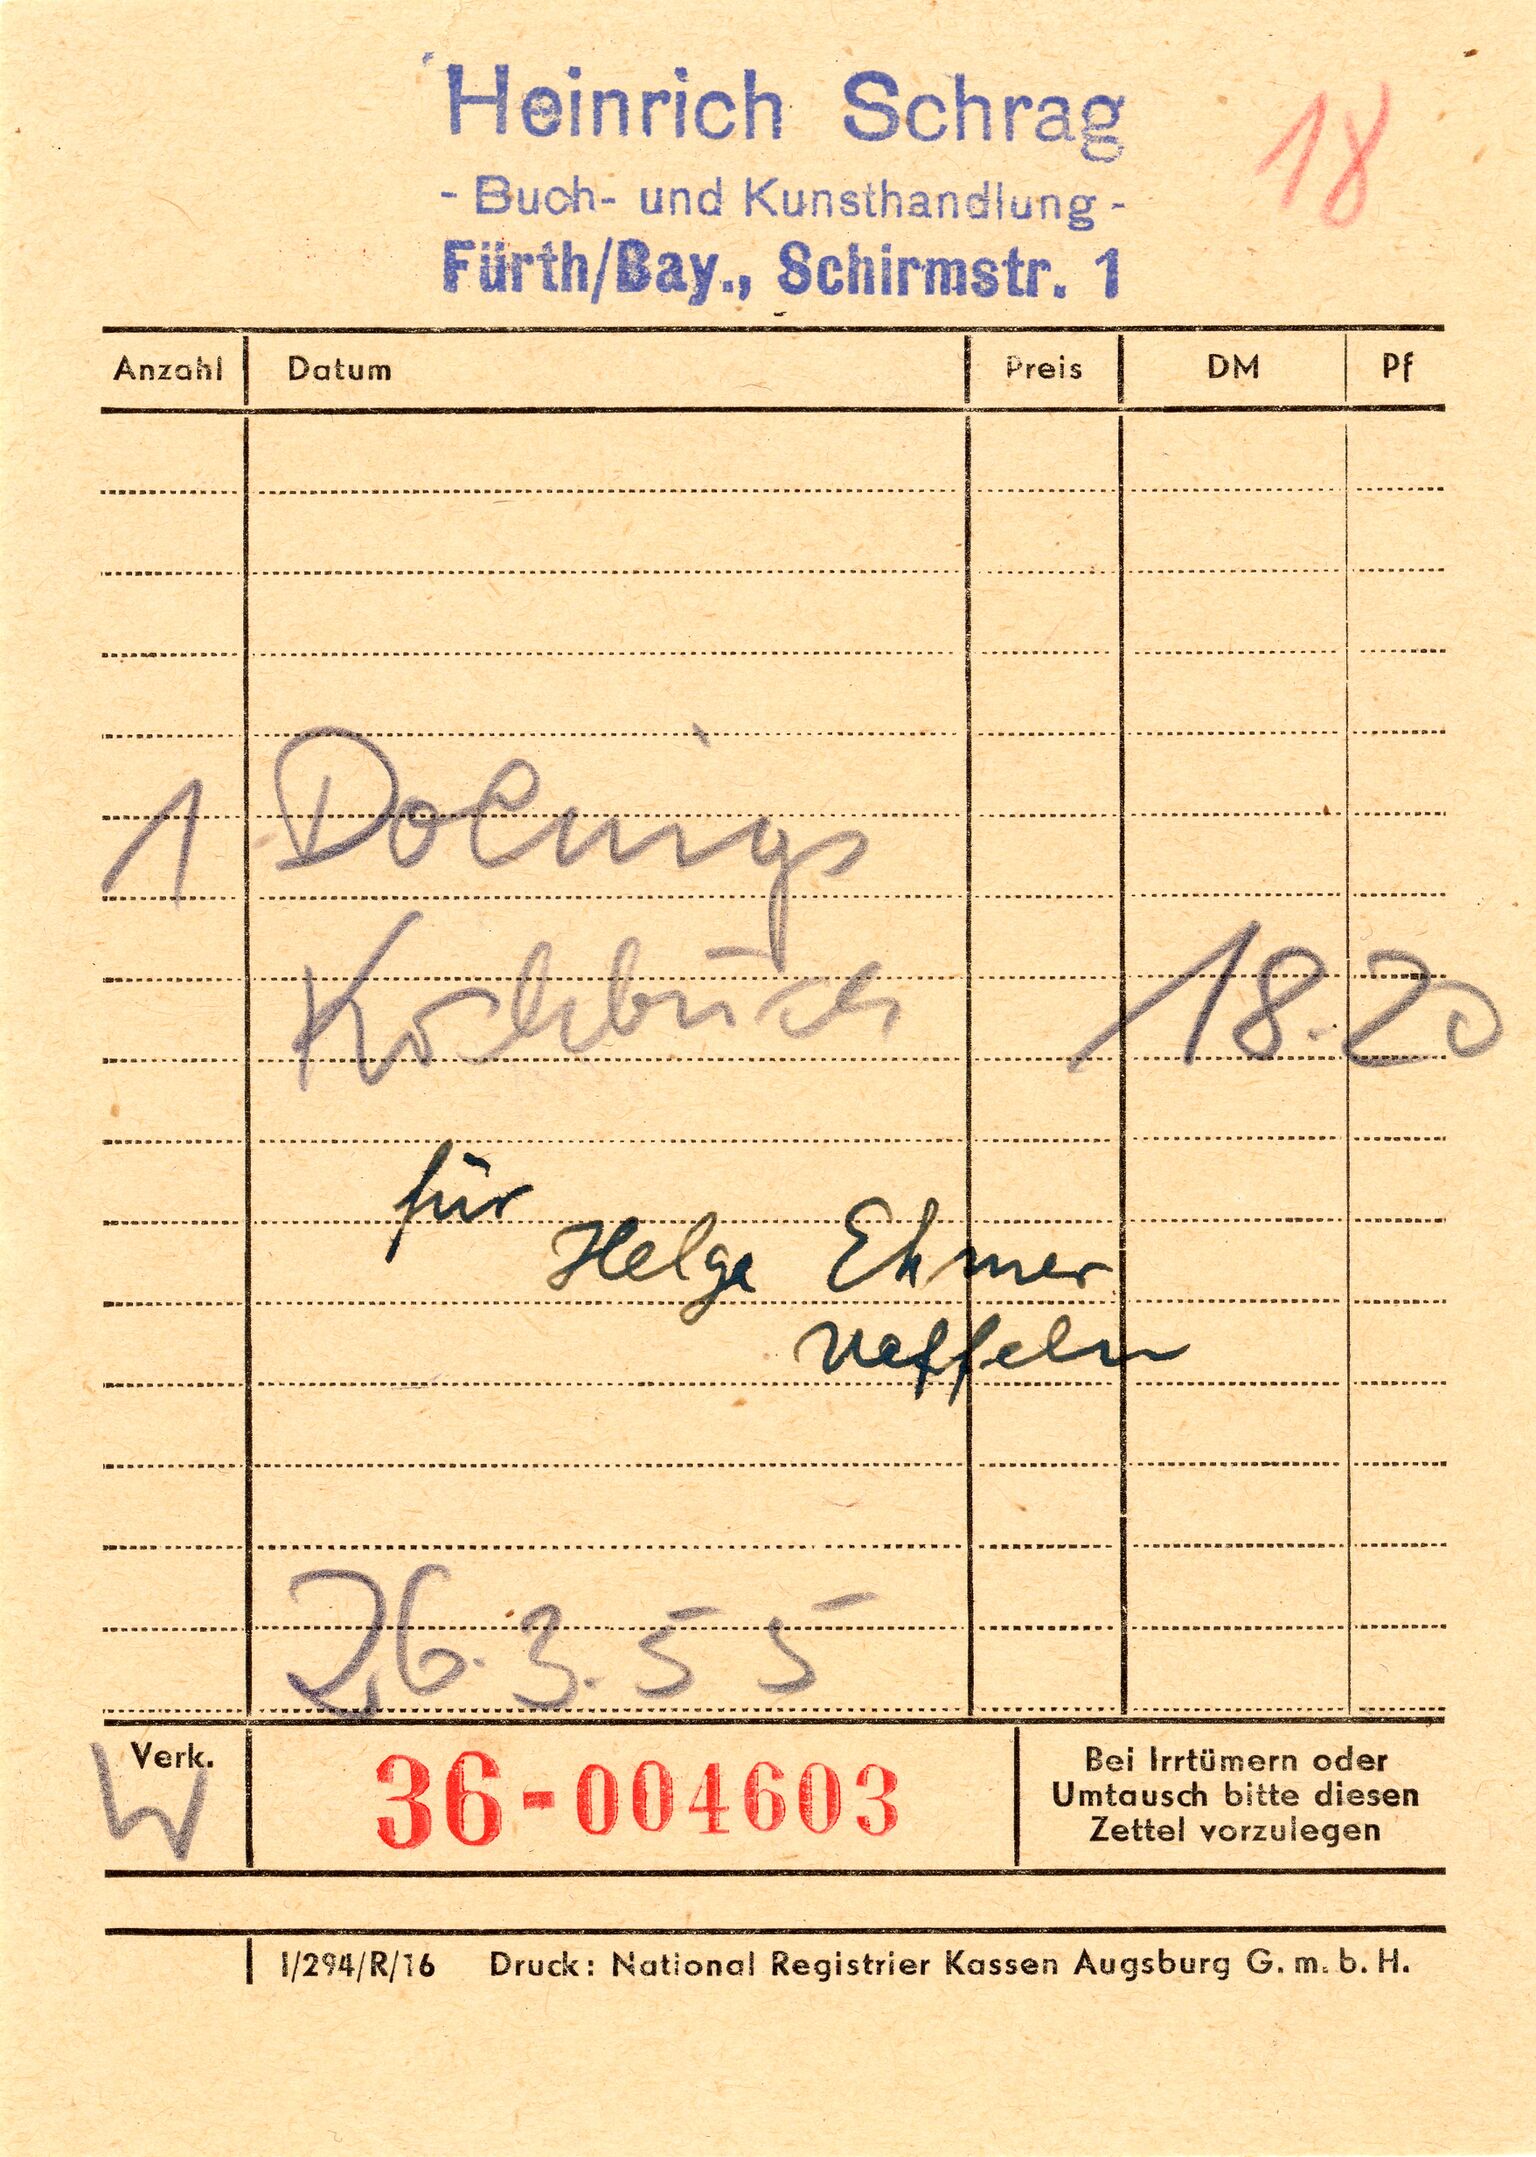 Heinrich Schrag
- Buch- und Kunsthandlung -
Fürth/Bay., Schirmstr. 1
18
Anzahl Datum Preis DM Pf
1
Kochbuch 18.20
für
Helge Ehmer
26.3.55
Verk.
W
36-004603
Bei Irrtümern oder
Umtausch bitte diesen
Zettel vorzulegen
I/294/R/16 Druck: National Registrier Kassen Augsburg G. m. b. H.